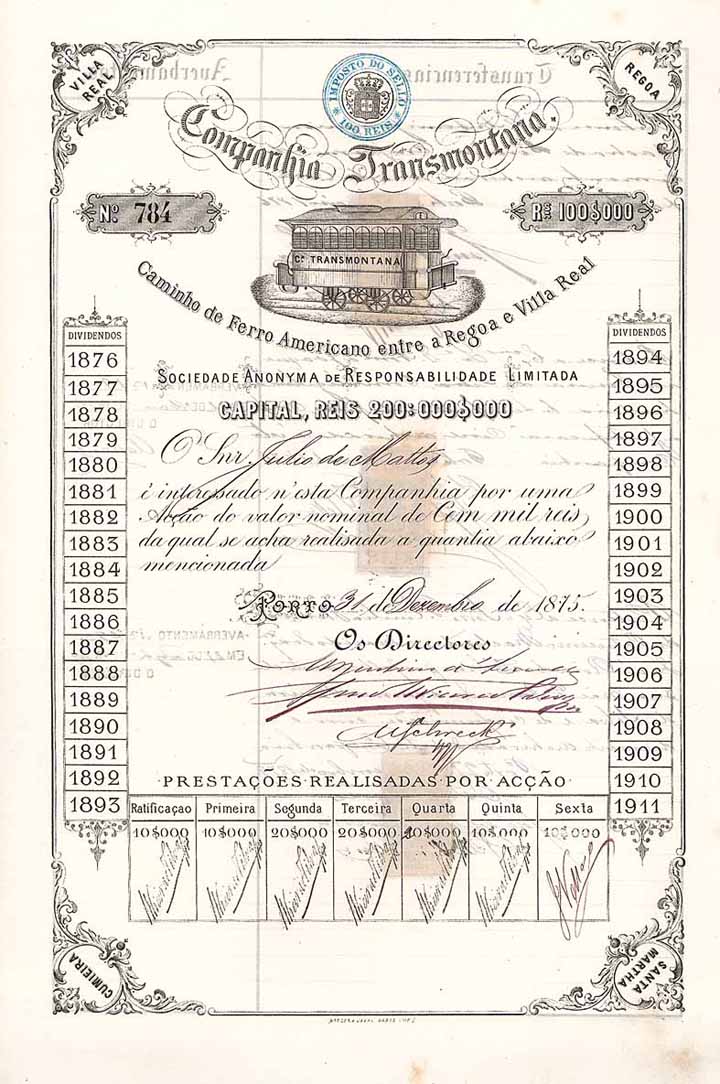 VILLA REAL
REGOA
IMPOSTO DO SELLO
100 REIS
Companhia Transmontana
Nº 784
RS 100$000
Cª TRANSMONTANA
Caminho de Ferro Americano entre a Regoa e Villa Real
SOCIEDADE ANONYMA DE RESPONSABILIDADE LIMITADA
CAPITAL, REIS 200:000$000
O Snr. Julio de Mattos
é interessado n'esta Companhia por uma
Acção do valor nominal de Cem mil reis,
da qual se acha realisada a quantia abaixo
mencionada
PORTO 31 de Dezembro de 1875.
Os Directores
DIVIDENDOS
1876
1877
1878
1879
1880
1881
1882
1883
1884
1885
1886
1887
1888
1889
1890
1891
1892
1893
DIVIDENDOS
1894
1895
1896
1897
1898
1899
1900
1901
1902
1903
1904
1905
1906
1907
1908
1909
1910
1911
PRESTAÇÕES REALISADAS POR ACÇÃO
Ratificaçao Primeira Segunda Terceira Quarta Quinta Sexta
10$000 10$000 20$000 20$000 20$000 10$000 10$000
CUMIEIRA
SANTA MARTHA